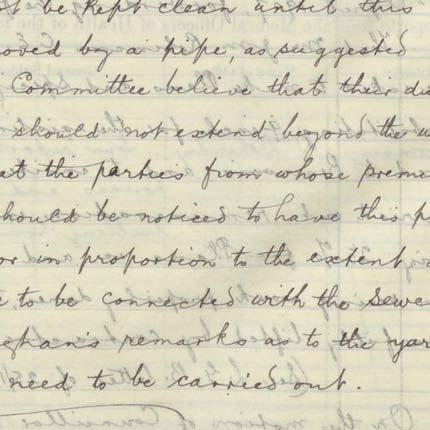 t be kept clean until this
oved by a pipe, as suggested
Committee believe that their du
should not extend beyond the w
at the parties from whose premi
hould be noticed to have this p
or in proportion to the extent
e to be connected with the sewe
ghan's remarks as to the yar
need to be carried out.